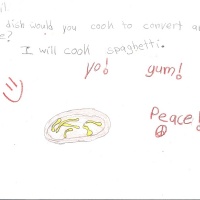 il.
dish would you cook to convert an
e?
I will cook spaghetti.
yo! yum!
Peace!